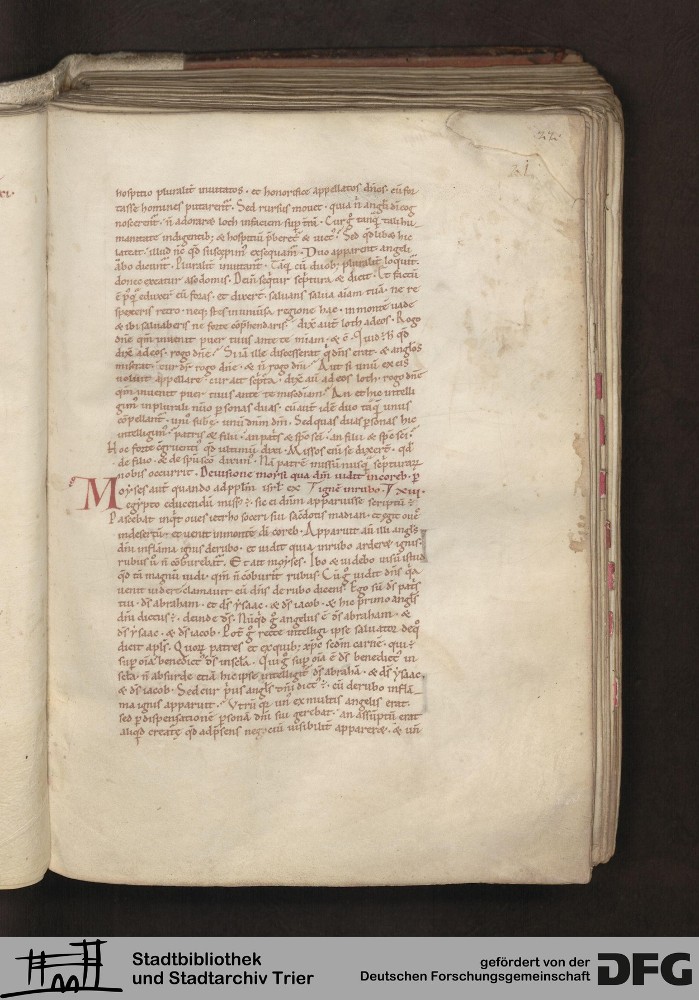 hospitio pluralit̄ inuitatos · et honorifice appellatos dn̄os · cū for
tasse homines putarent᷑ . Sed rursus mouet · quia n̄ angl̄i dī cog
noscerent᷑ · n̄ adoraret loth in faciem sup̄ t̄rā . Cur g̊ tanq̄ tali hu
manitate indigentib; & hospitiū p̄beret & uictū . Sed qd̄libet hic
lateat · illud nc̄ qd̄ suscepim᷒ exsequam᷑ . Duo apparent · angeli
abo dicunt᷑ . Pluralit̄ inuitant᷑ . Taq̄ cū duob; pluralit̄ loquit᷑ ·
donec exeatur a sodomis . Dein seq̄tur sc̄ptura & dicit . Et factū
ē p̄ q̄ eduxer̄ eū foras · et dixert̄ . saluans salua aīam tuā · ne re
spexeris retro · neq; stes in uniūsa regione hac · in monte uade
& ibi saluaberis ne forte cōp̄hendaris . dixit aut̄ loth ad eos · Rogo
dn̄e qm̄ inuenit puer tuus ante te mīam · & c̄ · Quid ē h̄ qd̄
dix̄ ad eos · rogo dn̄e . Si iā ille discesserat q dn̄s erat · & angl̄os
miserat · cur dr̄ · rogo dn̄e · & n̄ rogo dn̄i . Aut si unū ex eis
uoluit appellare · cur ait sc̄pta · dix̄ aū ad eos loth · rogo dn̄e
qm̄ inuenit puer tuus ante te misc̄diam . An et hic intelli
gim᷒ in plurali nūo p̄sonas duas · cū aut̄ idē duo taq̄ unus
cōpellant᷑ · uni᷒ sub̄ę · unū dnm̄ dm̄ . Sed quas duas p̄sonas hic
intelligim᷒ · patris & filii · an pat̄s & sp̄c sc̄i · an filii & sp̄c sc̄i .
Hoc forte c̄gruenti᷒ qd̄ ultimū dixi . Missos eni se dixert̄ · qd̄
de filio · & de sp̄u sc̄o dicim᷒ . Nā patrē missū nusq̄ sc̄pturarꝝ
nobis occurrit . De uisione moẏsi qua dm̄ uidit in coreb . p̄
Moẏses aut̄ quando ad pp̄lm̄ isrl̄ ex Ignē in rubo . XVII .
egẏpto educendū miss᷒ ē · sic ei dn̄m apparuisse scriptū ē .
Pascebat inqͥt oues iethro soceri sui sac̄dotis madian · et egit oues
in desertū · et uenit in monte dī coreb . Apparuit aū illi angl̄s
dn̄i in flāma ignis de rubo · et uidit quia in rubo arderet ignis ·
rubus u᷒ n̄ cōburebat᷑ . Et ait moẏses . Ibo & uidebo uisū istud
qd̄ tā magnū uidi · qm̄ n̄ coburit᷑ rubus . Cū g̊ uidit dn̄s q̄a
uenit uidere · clamauit eū dn̄s de rubo dicens . Ego sū ds̄ pat̄s
tui · ds̄ abraham · et ds̄ ẏsaac · & ds̄ iacob · & hic p̄rimo angl̄s
dn̄i dictus ē · deinde ds̄ . Nūqd̄ g̊ angelus ē ds̄ abraham · &
ds̄ ẏsaac · & ds̄ iacob . Pot̄ g̊ recte intelligi ipse saluator de q̊
dicit apl̄s . Quorꝝ patres et ex quib; xp̄c secdm̄ carnē · qui ē
sup̄ oīa benedict᷒ ds̄ in sc̄la . Qui g̊ sup̄ oīa ē ds̄ benedict᷒ in
sc̄la · n̄ absurde etiā hic ipse intelligit᷑ ds̄ abrahā · & ds̄ ẏsaac ·
& ds̄ iacob . Sed cur p̄us angl̄s dn̄i dict᷒ ē · cū de rubo in flā
ma ignis apparuit . Vtrū q̄a un᷒ ex multis angelis erat ·
sed p̄ dispensatione p̄sonā dn̄i sui gerebat · an assūptū erat
aliqd̄ creat᷑ę qd̄ ad p̄sens neg̊ciū uisibilit̄ apparer& · & un̄
Stadtbibliothek
und Stadtarchiv Trier
gefördert von der
Deutschen Forschungsgemeinschaft
DFG